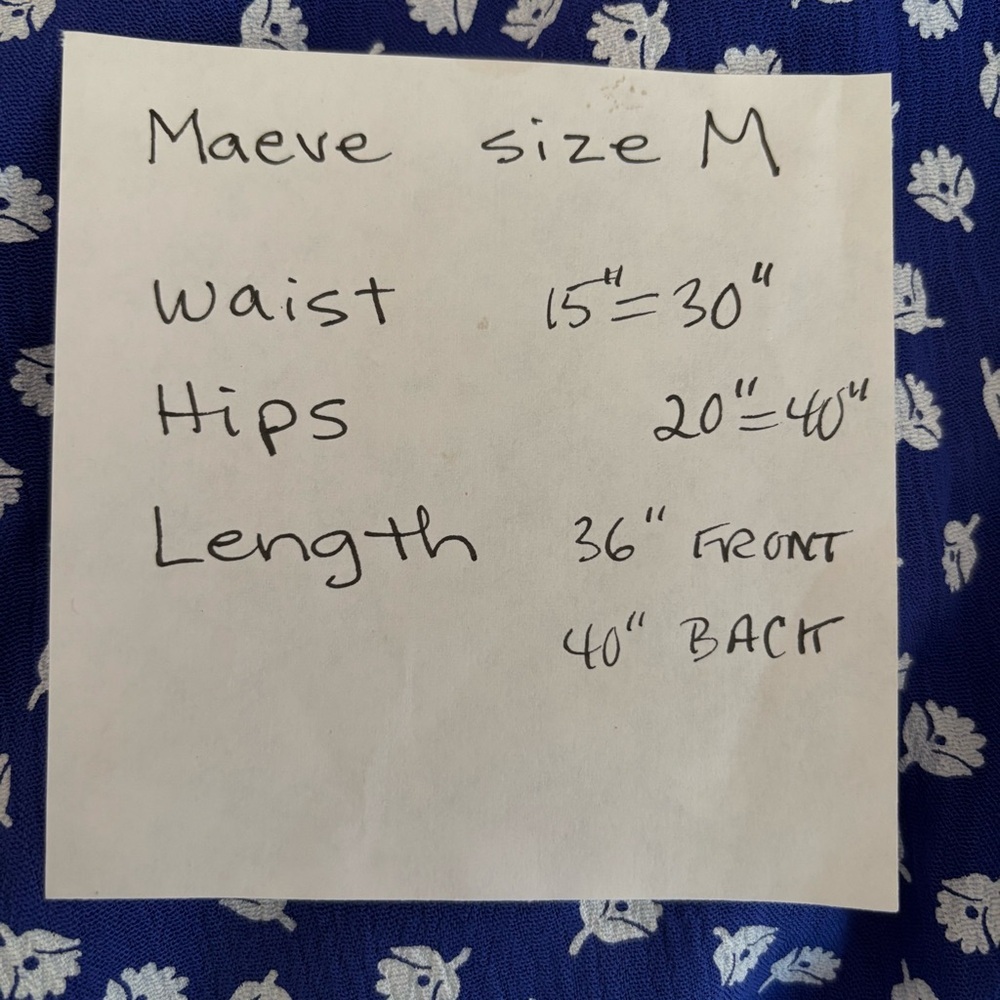 Maeve size M
Waist 15"=30"
Hips 20"=40"
Length 36" FRONT
40" BACK